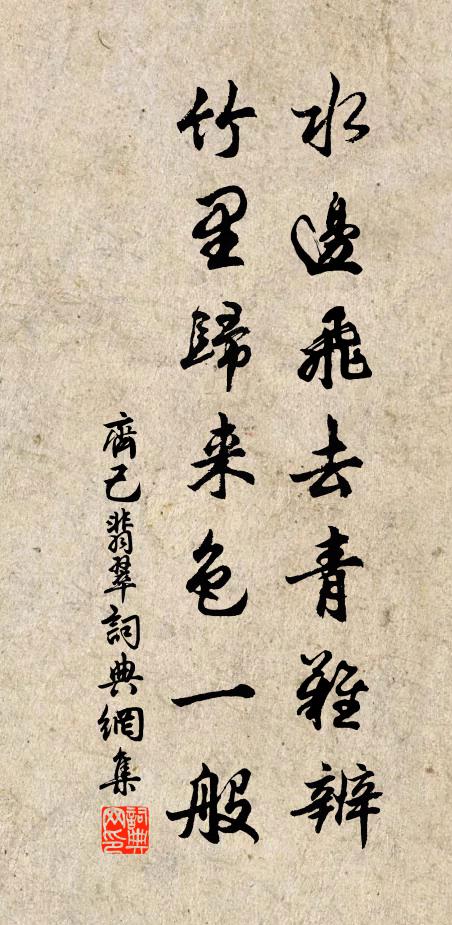 水邊飛去青難辨
竹里歸来色一般
齊己翡翠詞典網集
詞典网印